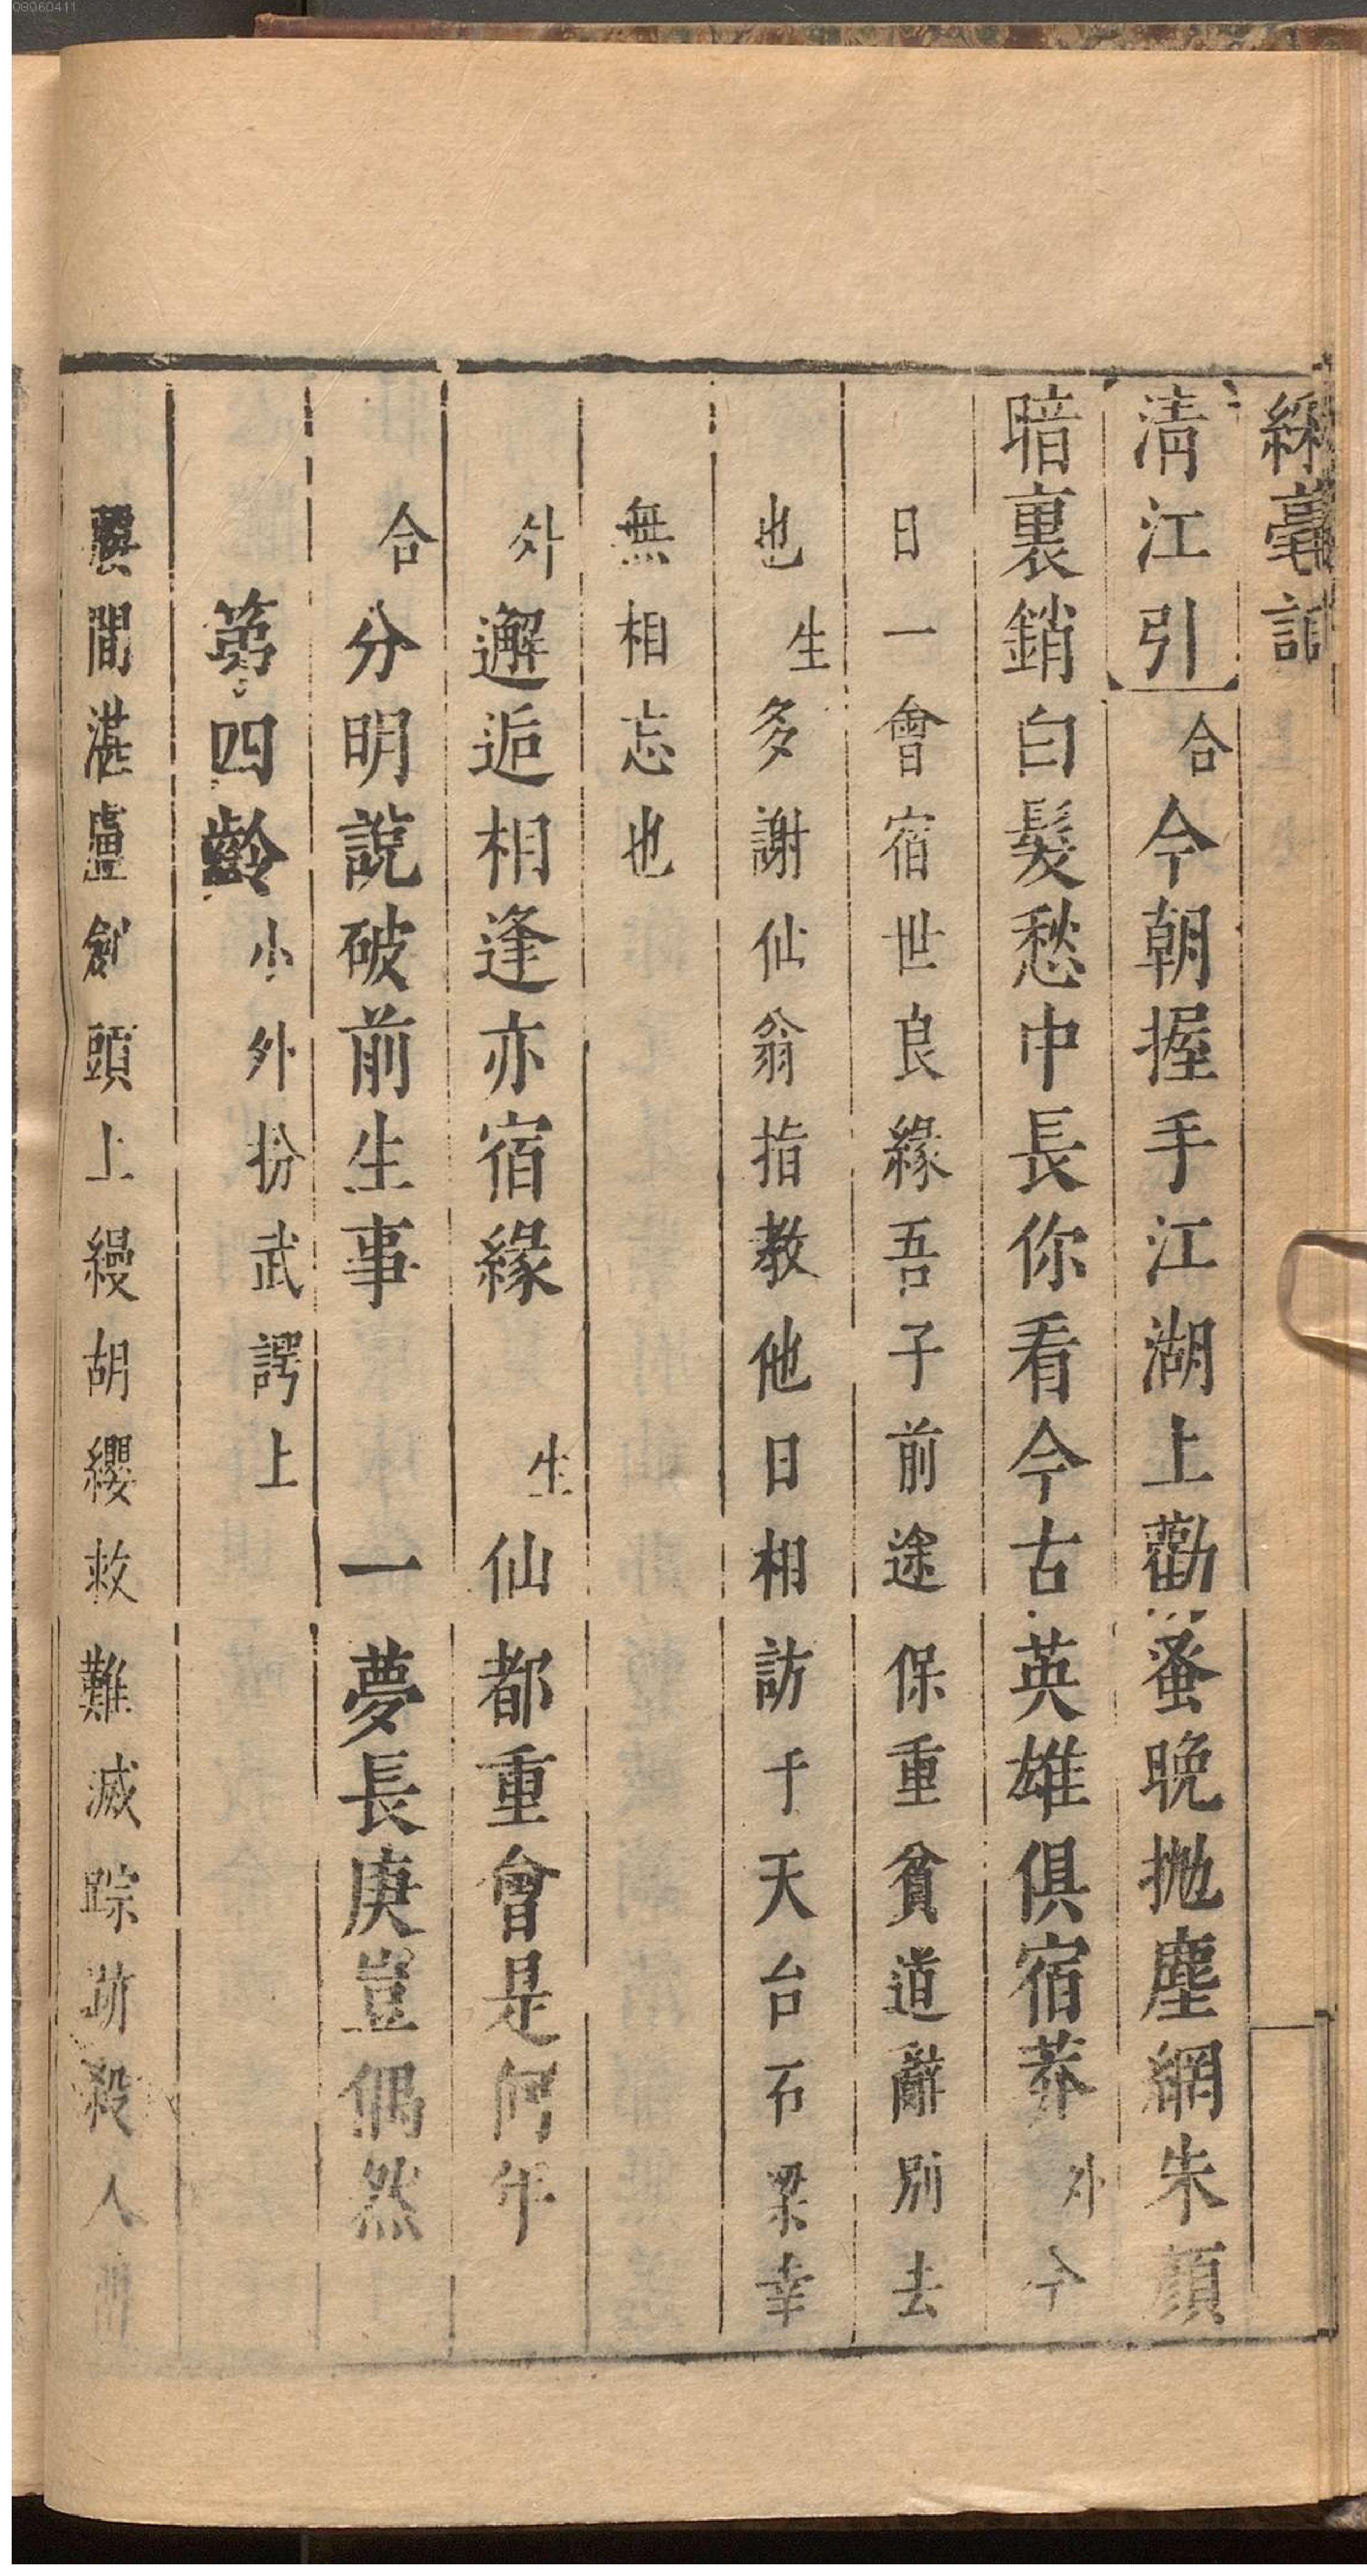 08060411
綵毫記
【清江引】合今朝握手江湖上勸蚤晚抛塵網朱顔
暗裏銷白髮愁中長你看今古英雄俱宿莽外今
日一會宿世良緣吾子前途保重貧道辭別去
也生多謝仙翁指教他日相訪于天台石梁幸
無相忘也
外邂逅相逢亦宿緣 生仙都重會是何年
合分明說破前生事 一夢長庚豈偶然
第四齣小外扮武諤上
間湛盧劍頭上縵胡纓救難滅踪跡殺人